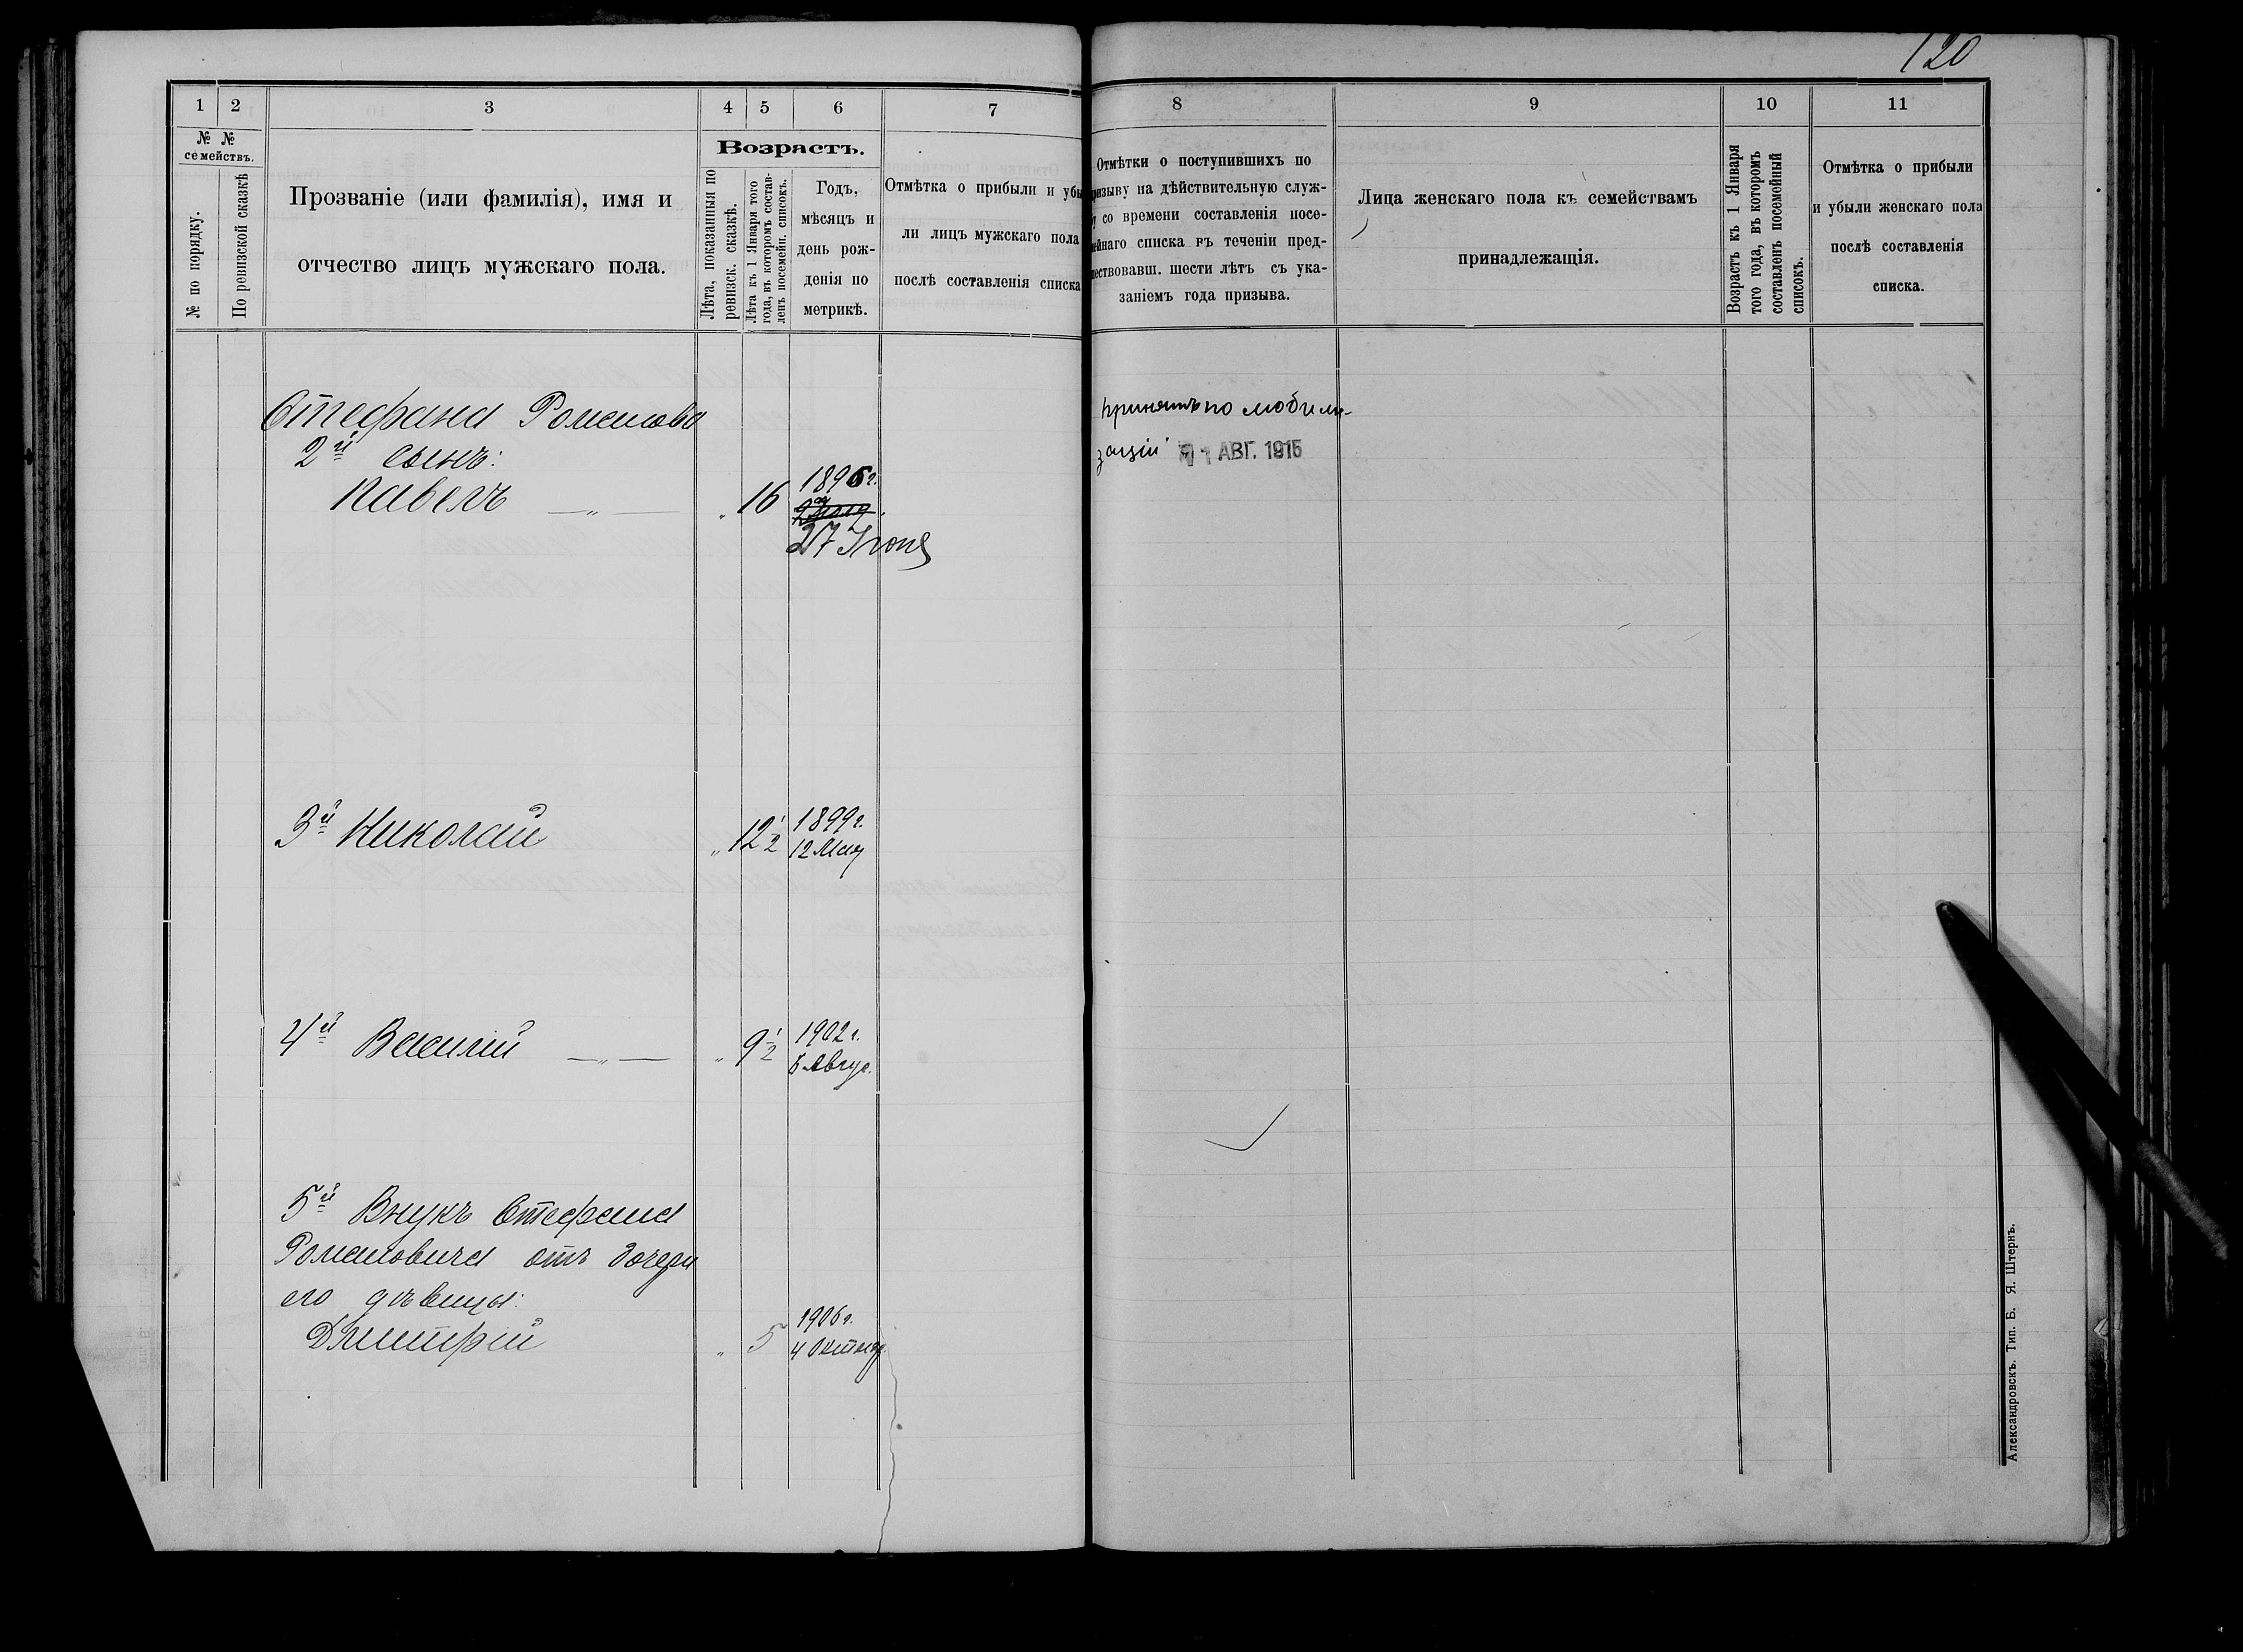 120
1
2
3
4
5
6
7
8
9
10
11
№ №
семействъ.
№ по порядку.
По ревизской сказкѣ
Прозваніе (или фамилія), имя и
отчество лицъ мужскаго пола.
Возрастъ.
Лѣта, показанныя по
ревизск. сказкѣ.
Лѣта къ 1 Января того
года, въ которомъ состав-
ленъ посемейн. списокъ.
Годъ,
мѣсяцъ и
день рож-
денія по
метрикѣ.
Отмѣтка о прибыли и убы
ли лицъ мужскаго пола
послѣ составленія списка
Отмѣтки о поступившихъ по
призыву на дѣйствительную служ-
у со времени составленія посе-
мейнаго списка въ теченіи пред-
шествовавш. шести лѣтъ съ ука-
заніемъ года призыва.
Лица женскаго пола къ семействамъ
принадлежащія.
Возрастъ къ 1 Января
того года, въ которомъ
составленъ посемейный
списокъ.
Отмѣтка о прибыли
и убыли женскаго пола
послѣ составленія
списка.
Стефана Романова
2й сынъ:
Павелъ — „ — „ 16 1896 г.
27 Іюня
принятъ по мобили-
заціи 1 АВГ. 1915
3й Николай „ 12 1/2 1899 г.
12 Мая
4й Василій — „ — „ 9 1/2 1902 г.
8 Авгус.
5й Внукъ Стефана
Романовича отъ дочери
его дѣвицы:
Дмитрій „ 5 1906 г.
4 Октяб
Александровскъ. Тип. Б. Я. Штернъ.